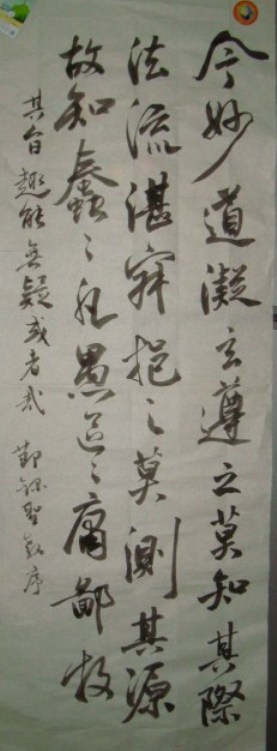 今妙道凝玄遵之莫知其際
法流湛寂挹之莫測其源
故知蠢々凡愚區々庸鄙投
其旨趣能無疑或者哉 節錄聖教序